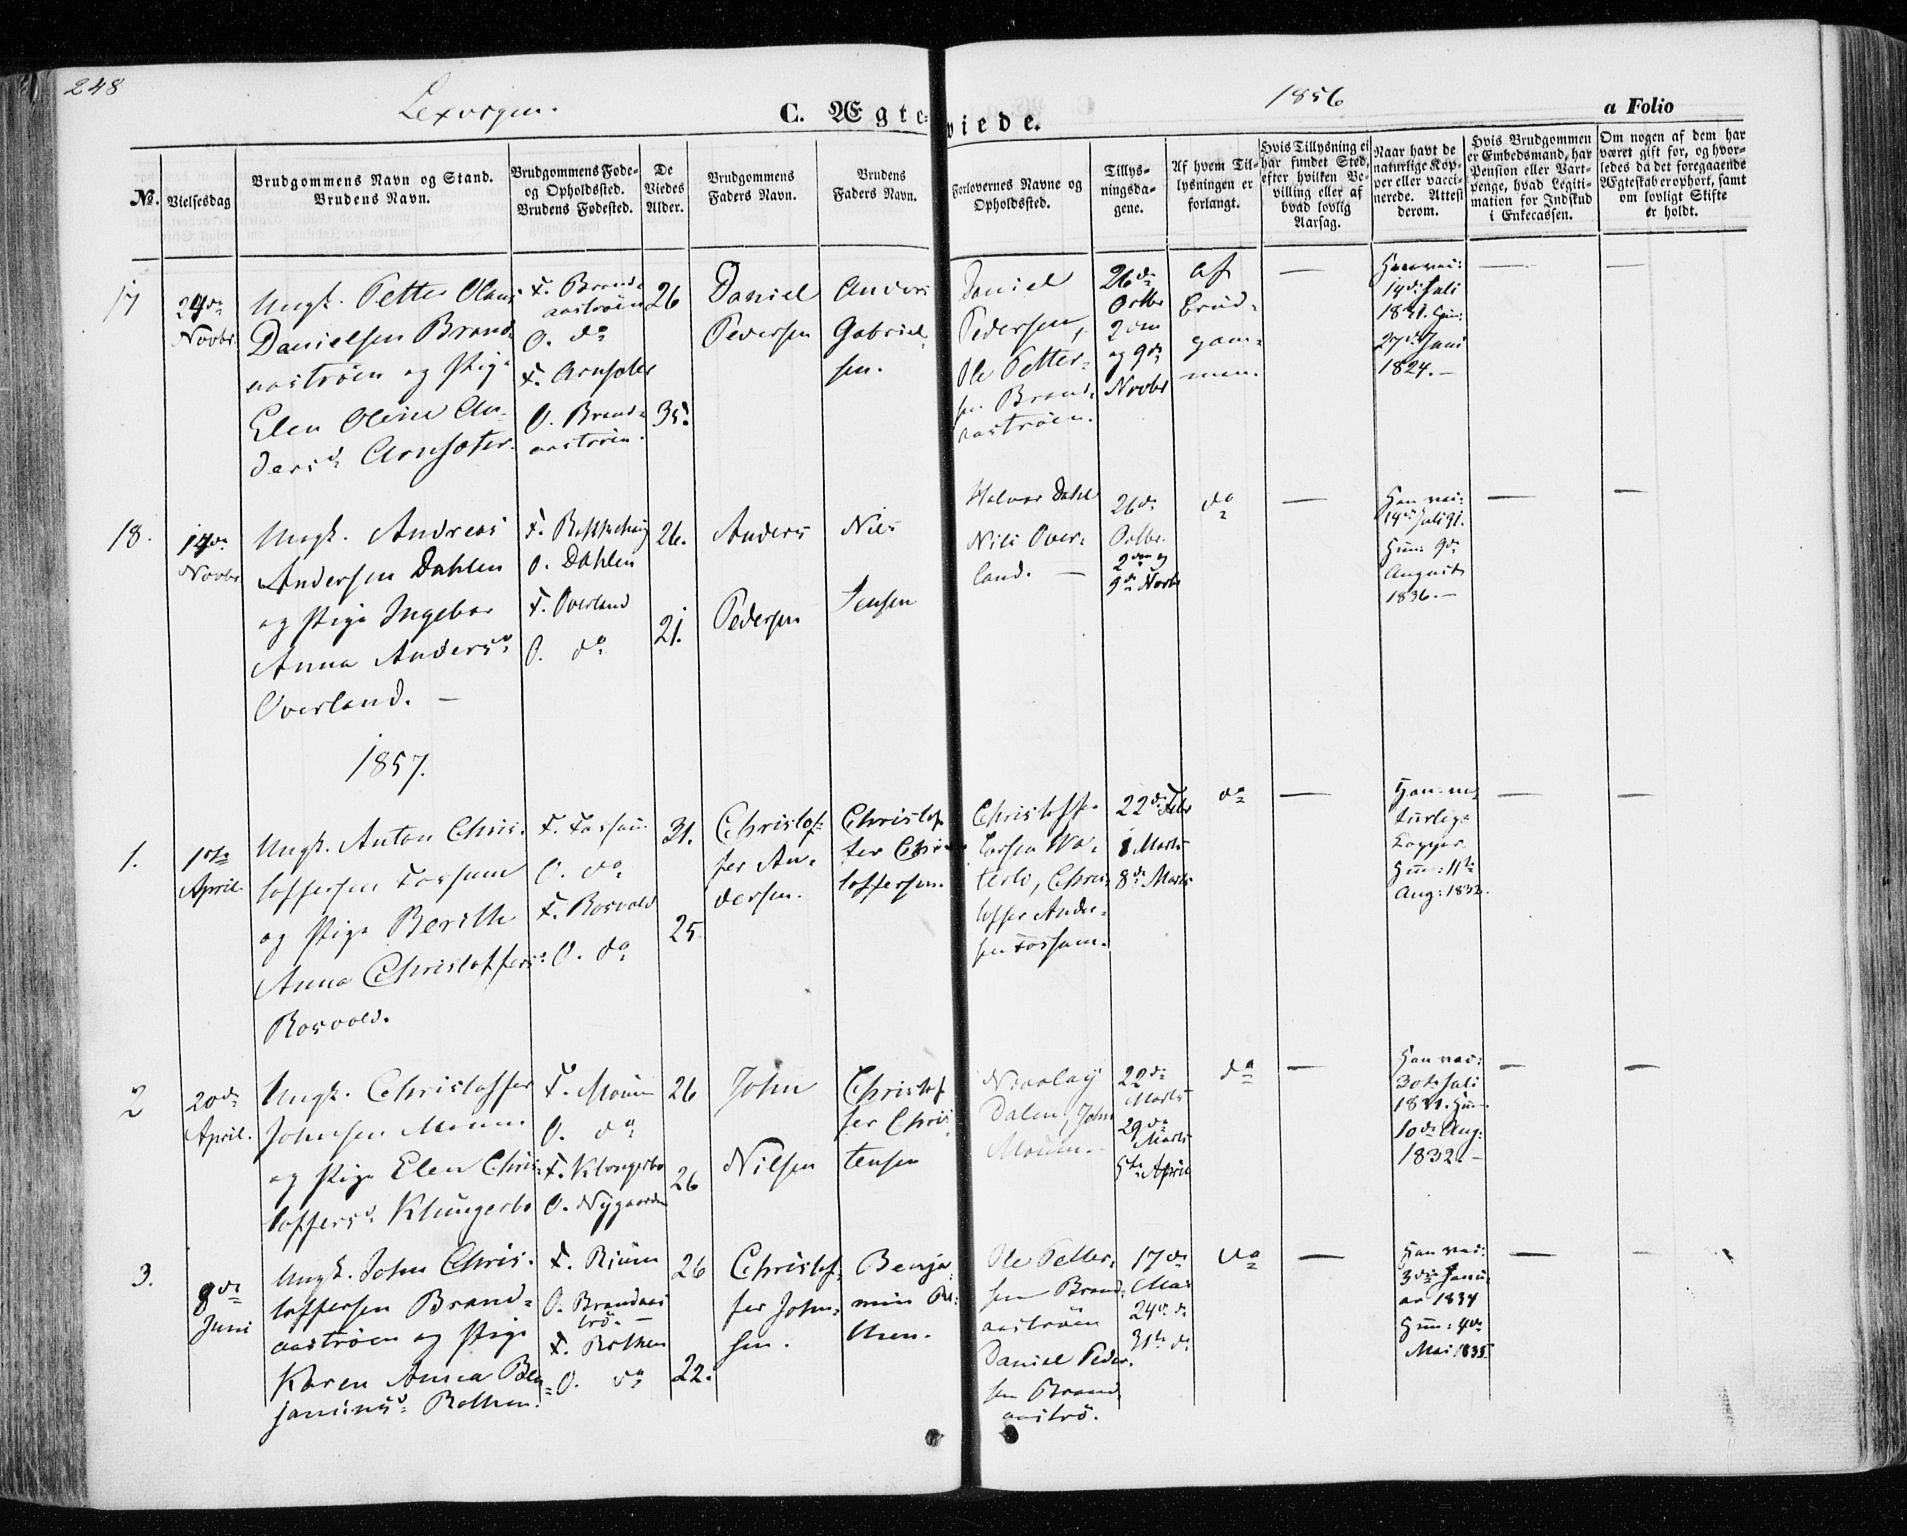 248
Lexvigen.
1856
C. Ægteviede.
a Folio
No.
Vielsesdag
Brudgommens Navn og Stand.
Brudens Navn.
Brudgommens Føde-
og Opholdssted.
Brudens Fødested.
De
Viedes
Alder.
Brudgommens
Faders Navn.
Brudens
Faders Navn.
Forlovernes Navne og
Opholdssted.
Tillys-
ningsda-
gene.
Af hvem Til-
lysningen er
forlangt.
Hvis Tillysning ei
har fundet Sted,
efter hvilken Be-
villing eller af
hvad lovlig
Aarsag.
Naar havt de
naturlige Kop-
per eller vacci-
nerede. Attest
derom.
Hvis Brudgommen
er Embedsmand, har
Pension eller Vart-
penge, hvad Legiti-
mation for Indskud
i Enkecassen.
Om nogen af dem har
været gift før, og hvor-
ledes da det foregaaende
Ægteskab er ophørt, samt
om lovligt Skifte
er holdt.
17
24de
Novbr.
Ungk. Petter Olaus
Danielsen Brand-
aastrøen og Pige
Elen Oline An-
dersd. Arnsæter.
F. Brand-
aastrøen
O. do
F. Arnsæter
O. Brand-
aastrøen.
26
35.
Daniel
Pedersen
Anders
Gabriel-
sen.
Daniel
Pedersen,
Ole Petter-
sen Brand-
aastrøen.
26de
Octbr
2den
og 9de
Novbr
Af
Brud-
gom-
men.
—
Han vac:
14de Juli
1831. Hun:
27de Juni
1824.—
—
—
18.
14de
Novbr
Ungk. Andreas
Andersen Dahlen
og Pige Ingebor
Anna Andersd.
Overland. —
F.
O. Dahlen
F. Overland
O. do
26.
21.
Anders
Pedersen
Nils
Jensen
Halvor Dahl
Nils Over-
land. —
26de
Octbr.
2den og
9de Novbr
do
—
Han vac:
14de Juli 31.
Hun: 9de
August
1836.—
—
—
1857.
1.
1ste
April
Ungk. Anton Chris-
toffersen Fossum
og Pige Berith
Anna Christoffersd.
Rosvold.
F. Fossum
O. do
F. Rosvold
O. do
31.
25.
Christof-
fer An-
dersen.
Christof-
fer Chris-
toffersen.
Christoffer
Larsen
Chris-
toffer Ander-
sen Fossum.
22de Febr
1 Marts
8de Marts
do
—
Han na-
turlige
Kopper.
Hun: 11te
Aug: 1832.
—
—
2
20de
April.
Ungk. Christoffer
Johnsen Mouum
og Pige Elen Chris-
toffersd. Klungerbo
F. Mouum
O. do
F. Klungerbo
O. Nygaarden
26
26
John
Nilsen
Christof-
fer Chris-
tensen
Nicolay
Dalen, John
Mouum.
22de
Marts
29de
Marts
5te April
do
—
Han vac:
30te Juli
1831. Hun.
10de Aug:
1832.—
—
—
3.
8de
Juni
Ungk. John Chris-
toffersen Brand-
aastrøen og Pige
Karen Anna Ben-
jaminsd. Rothen.
F.
O. Brandaas-
trø.—
F. Rothen
O. do
26
22.
Christof-
fer John-
sen.
Benja-
min
Ole Petter-
sen Brand-
aastrøen
Daniel Peder-
sen Brand-
aastrø.
17de
Mai
24de d.
31te d.
do
—
Han vac:
3die Janu-
ar 1834
Hun: 4de
Mai 1835.
—
—